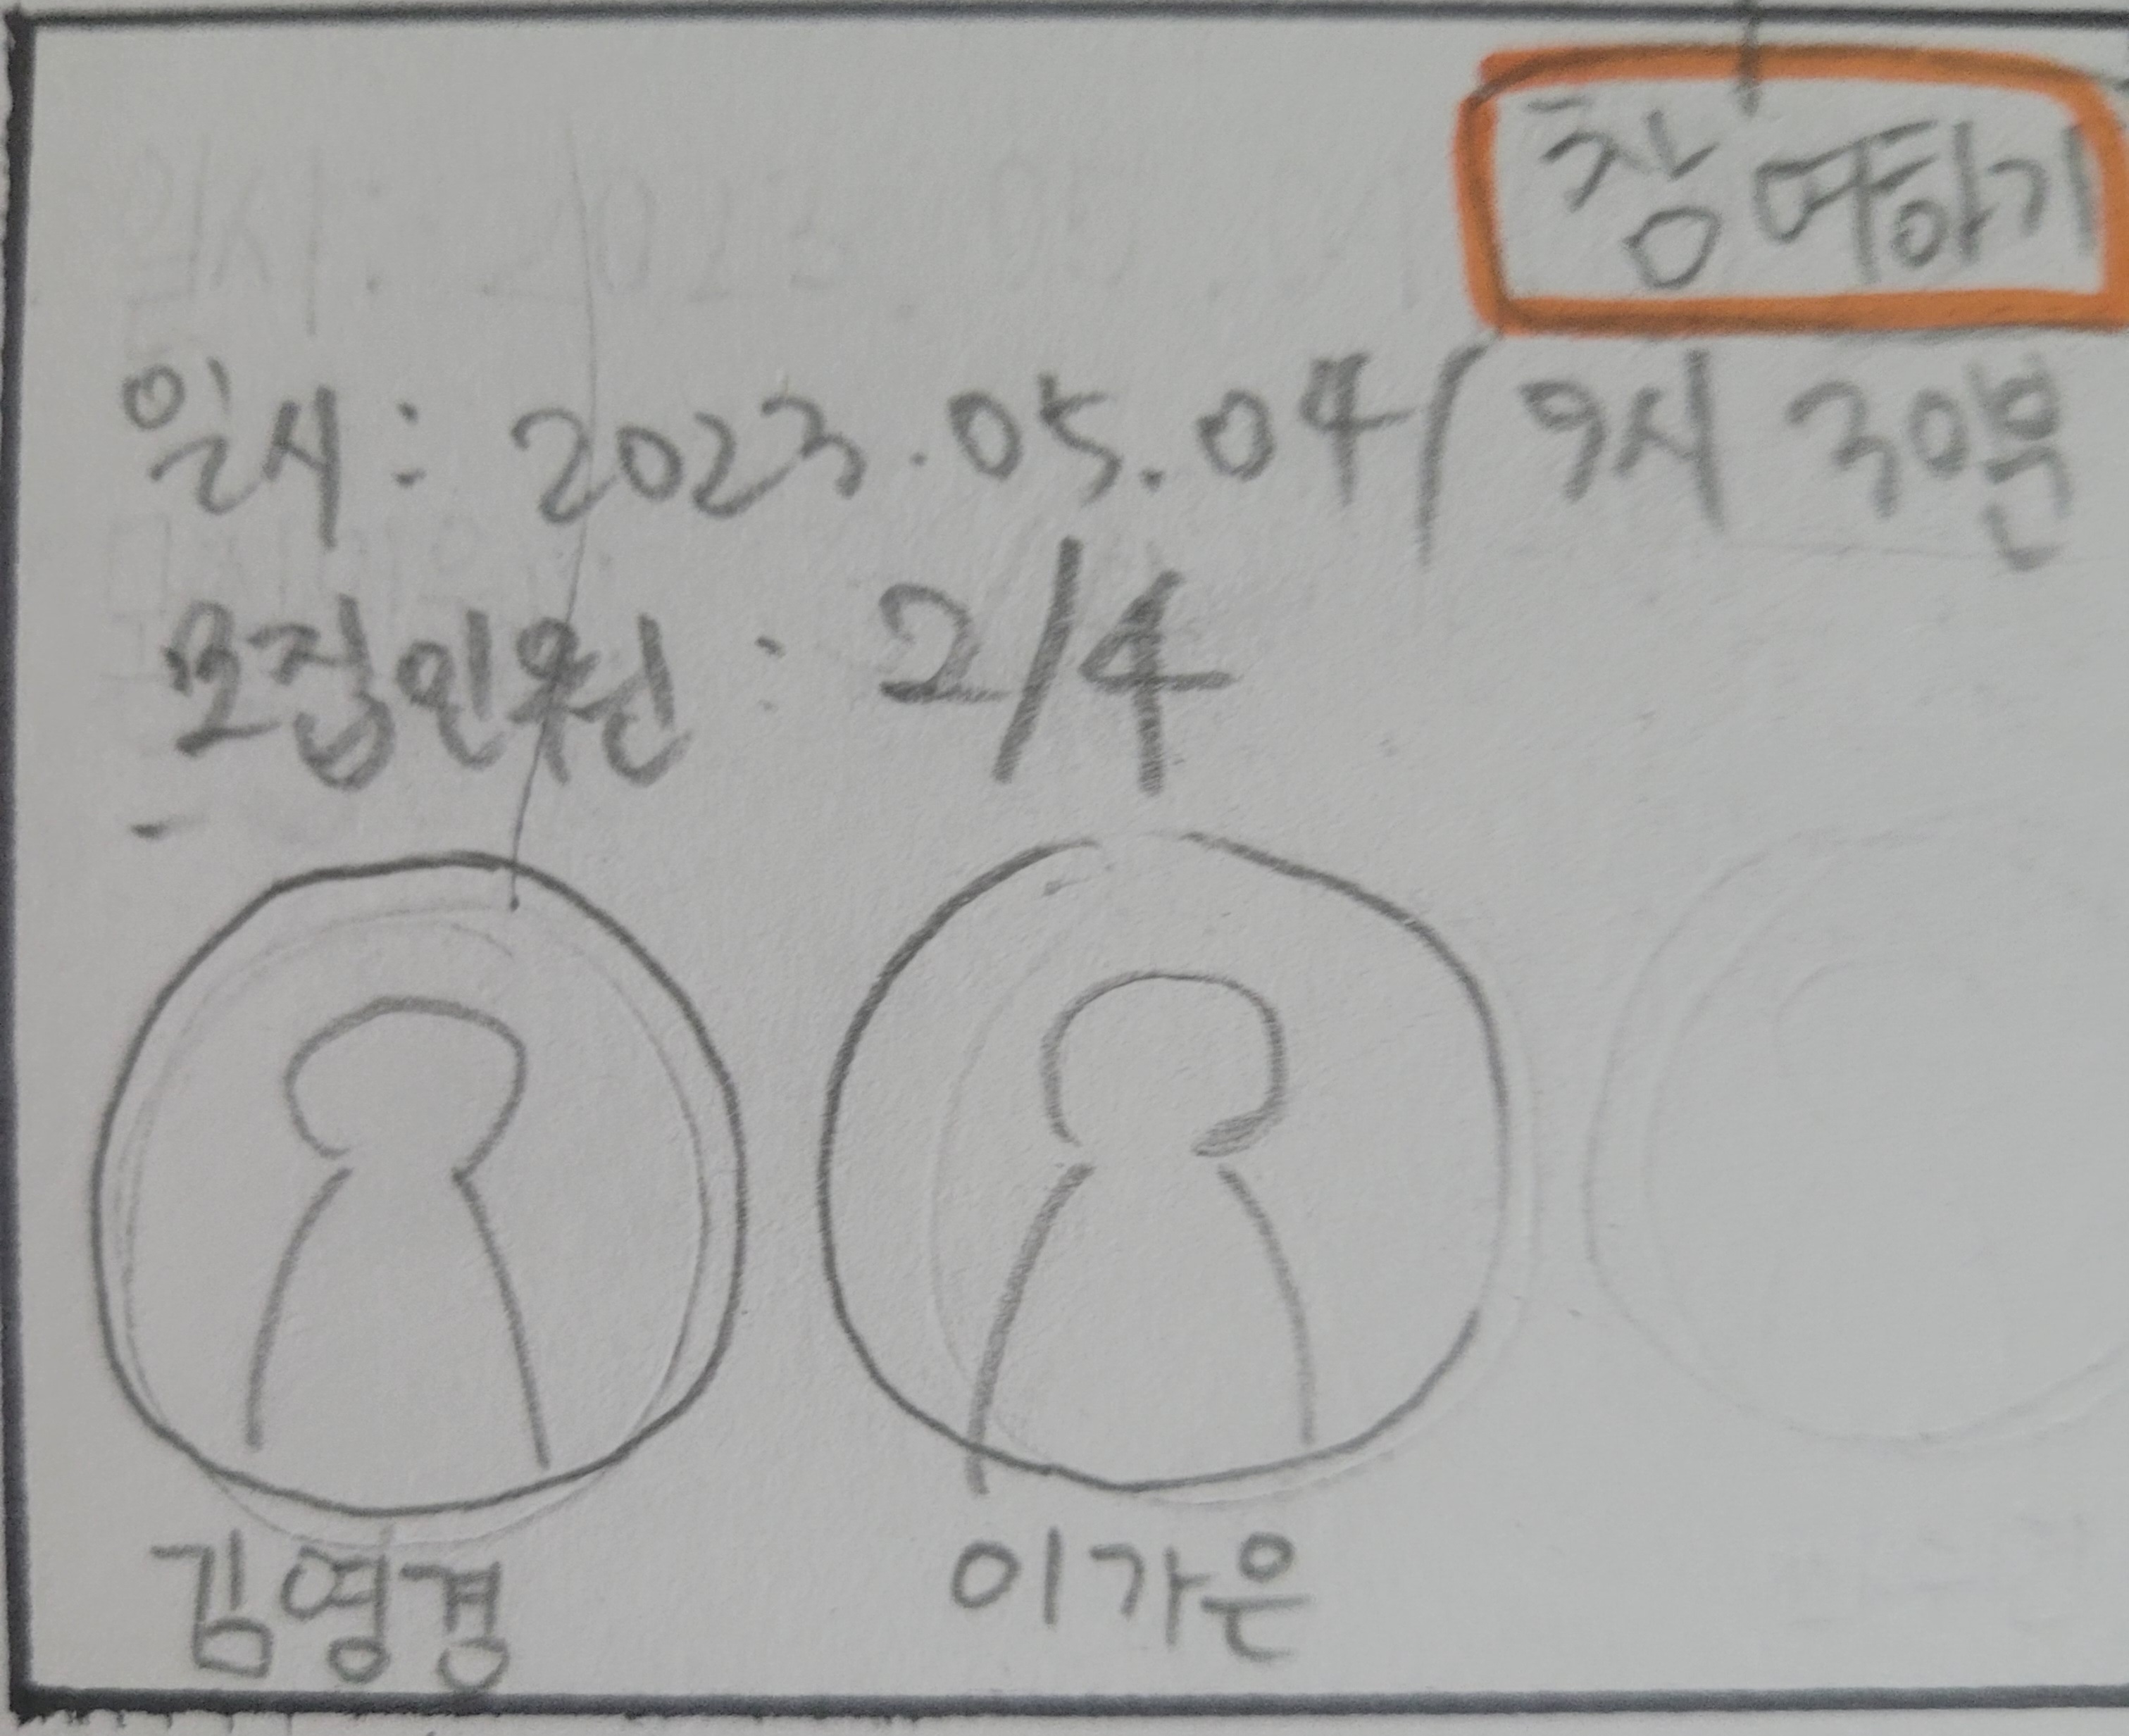 참여하기
일시: 2023.05.04/9시 30분
모집인원: 2/4
김영경
이가은